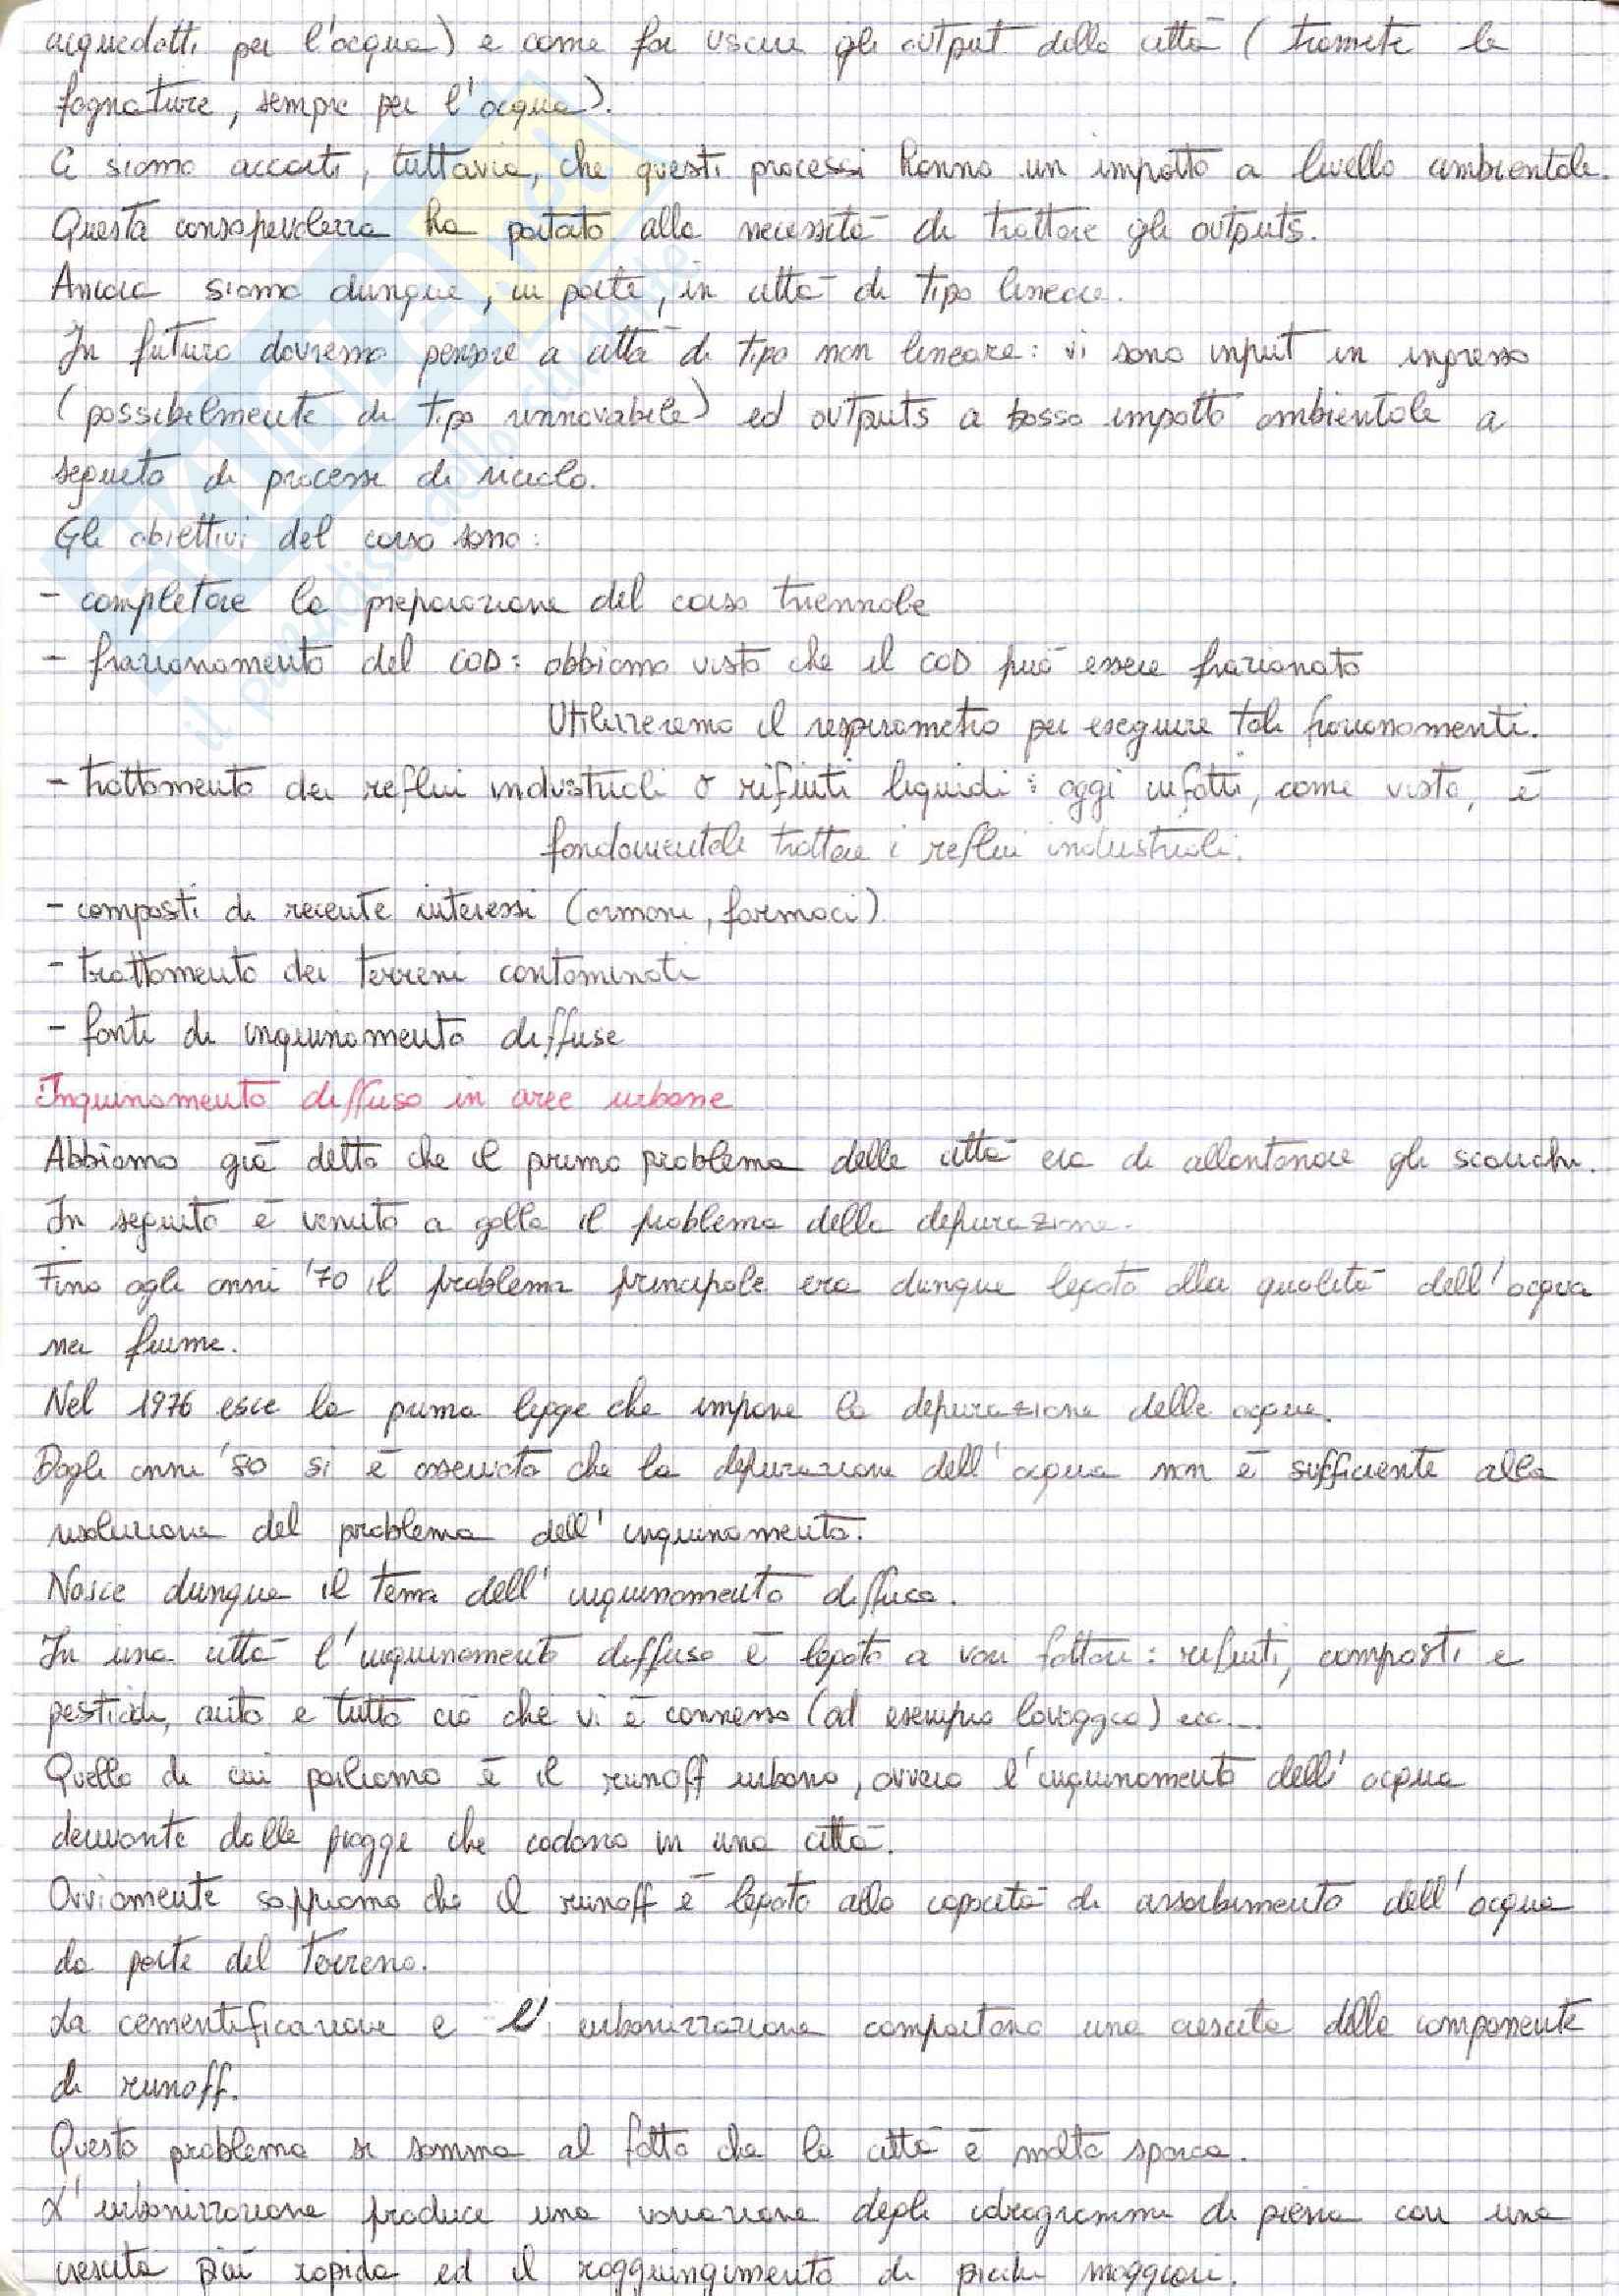 acquedotti per l'acqua) e come far uscire gli output dalla città (tramite le
fognature, sempre per l'acqua).
Ci siamo accorti, tuttavia, che questi processi hanno un impatto a livello ambientale.
Questa consapevolezza ha portato alla necessità di trattare gli outputs.
Ancora siamo dunque, in parte, in città di tipo lineare.
In futuro dovremo pensare a città di tipo non lineare: vi sono input in ingresso
(possibilmente di tipo rinnovabile) ed outputs a basso impatto ambientale a
seguito di processi di riciclo.
Gli obiettivi del corso sono:
- completare la preparazione del corso triennale
- frazionamento del COD: abbiamo visto che il COD può essere frazionato
Utilizzeremo il respirometro per eseguire tali frazionamenti.
- trattamento dei reflui industriali o rifiuti liquidi: oggi infatti, come visto, è
fondamentale trattare i reflui industriali.
- composti di recente interessi (ormoni, farmaci)
- trattamento dei terreni contaminati
- fonti di inquinamento diffuse
Inquinamento diffuso in aree urbane
Abbiamo già detto che il primo problema delle città era di allontanare gli scarichi.
In seguito è venuto a galla il problema della depurazione.
Fino agli anni '70 il problema principale era dunque legato alla qualità dell'acqua
nei fiumi.
Nel 1976 esce la prima legge che impone la depurazione delle acque.
Dagli anni '80 si è osservato che la depurazione dell'acqua non è sufficiente alla
risoluzione del problema dell'inquinamento.
Nasce dunque il tema dell'inquinamento diffuso.
In una città l'inquinamento diffuso è legato a vari fattori: rifiuti, composti e
pesticidi, auto e tutto ciò che vi è connesso (ad esempio lavaggio) ecc...
Quello di cui parliamo è il runoff urbano, ovvero l'inquinamento dell'acqua
derivante dalle piogge che cadono in una città.
Ovviamente sappiamo che il runoff è legato alla capacità di assorbimento dell'acqua
da parte del terreno.
La cementificazione e l'urbanizzazione comportano una crescita della componente
di runoff.
Questo problema si somma al fatto che la città è molto sporca.
L'urbanizzazione produce una variazione degli idrogrammi di piena con una
crescita più rapida ed il raggiungimento di picchi maggiori.